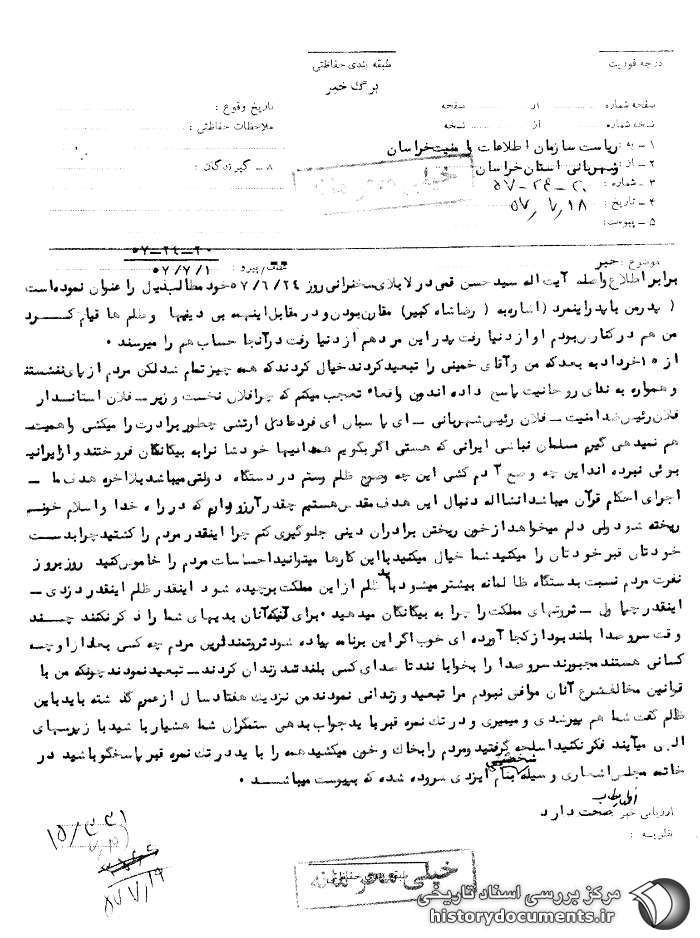 درجه فوریت
طبقه بندی حفاظتی
برگ خبر
صفحه شماره : از صفحه
نسخه شماره : از نسخه
تاریخ وقوع :
ملاحظات حفاظتی :
۱ – به : ریاست سازمان اطلاعات و امنیت خراسان
۲ – از : شهربانی استان خراسان
۳ – شماره : ۲۰–۲۴–۵۷
۴ – تاریخ : ۵۷/۷/۱۸
۵ – پیوست :
۸ – گیرندگان :
خیلی محرمانه
موضوع : خبر
عطف/پیرو : ۲۰–۲۴–۵۷
۵۷/۷/۱
برابر اطلاع واصله آیت اله سید حسن قمی در لابلای سخنرانی روز ۵۷/۶/۲۴ خود مطالب ذیل را عنوان نموده است
( پدر من با پدر اینمرد ( اشاره به رضا شاه کبیر) مقارن بودن و در مقابل اینهمه بی دینیها و ظلم ها قیام کرد
من هم در کنارش بودم او از دنیا رفت پدر این مرد هم از دنیا رفت در آنجا حساب هم را میرسند .
از ۱۵ خرداد به بعد که من و آقای خمینی را تبعید کردند خیال کردند که همه چیز تمام شد لکن مردم از پای ننشستند
و همواره به ندای روحانیت پاسخ داده اند من واقعا" تعجب میکنم که چرا فلان نخست وزیر – فلان استاندار
فلان رئیس ضد امنیت – فلان رئیس شهربانی – ای پاسبان ای فرد عادی ارتشی چطور برادرت را میکشی و اهمیت
هم نمیدهی گیرم مسلمان نباشی ایرانی که هستی اگر بگویم همه اینها خودشان را به بیگانگان فروختند و از ایرانیت
بوئی نبرده اند این چه وضع آدم کشی این چه وضع ظلم و ستم در دستگاه دولتی میباشد بلاخره هدف ما –
اجرای احکام قرآن میباشد انشااله دنبال این هدف مقدس هستیم چقدر آرزو دارم که در راه خدا و اسلام خونم
ریخته شود ولی دلم میخواهد از خون ریختن برادران دینی جلوگیری کنم چرا اینقدر مردم را کشتید چرا بدست
خودتان قبر خودتان را میکنید شما خیال میکنید با این کارها میتوانید احساسات مردم را خاموش کنید روز بروز
نفرت مردم نسبت بدستگاه ظالمانه بیشتر میشود باید ظلم از این مملکت برچیده شود اینقدر ظلم اینقدر دزدی –
اینقدر چپاول – ثروتهای مملکت را چرا به بیگانگان میدهید . برای آنکه آنان بدیهای شما را ذکر نکنند چند
وقت سر و صدا بلند بود از کجا آورده ای خوب اگر این برنامه پیاده شود ثروتمندترین مردم چه کسی بعد از او چه
کسانی هستند مجبورند سر و صدا را بخوابانند تا صدای کسی بلند شد زندان کردند – تبعید نمودند چونکه من با
قوانین مخالف شرع آنان موافق نبودم مرا تبعید و زندانی نمودند من نزدیک هفتاد سال از عمرم گذشته باید باین
ظالم گفت شما هم پیر شدی و میمیری و در تک نمره قبر باید جواب بدهی ستمگران شما هشیار باشید بازپرسهای
الهی میآیند فکر نکنید اسلحه گرفتید و مردم را بخاک و خون میکشید همه را باید در تک نمره قبر پاسخگو باشید در
خاتمه مجلس اشعاری وسیله شخصی بنام ایزدی سروده شده که بپیوست میباشد .
ارزیابی خبر : اظهار مطالب صحت دارد
نظریه :
۱۵/۳۳۱
۵۷/۷/۱۹
خیلی محرمانه
طبقه بندی حفاظتی
مرکز بررسی اسناد تاریخی
historydocuments.ir